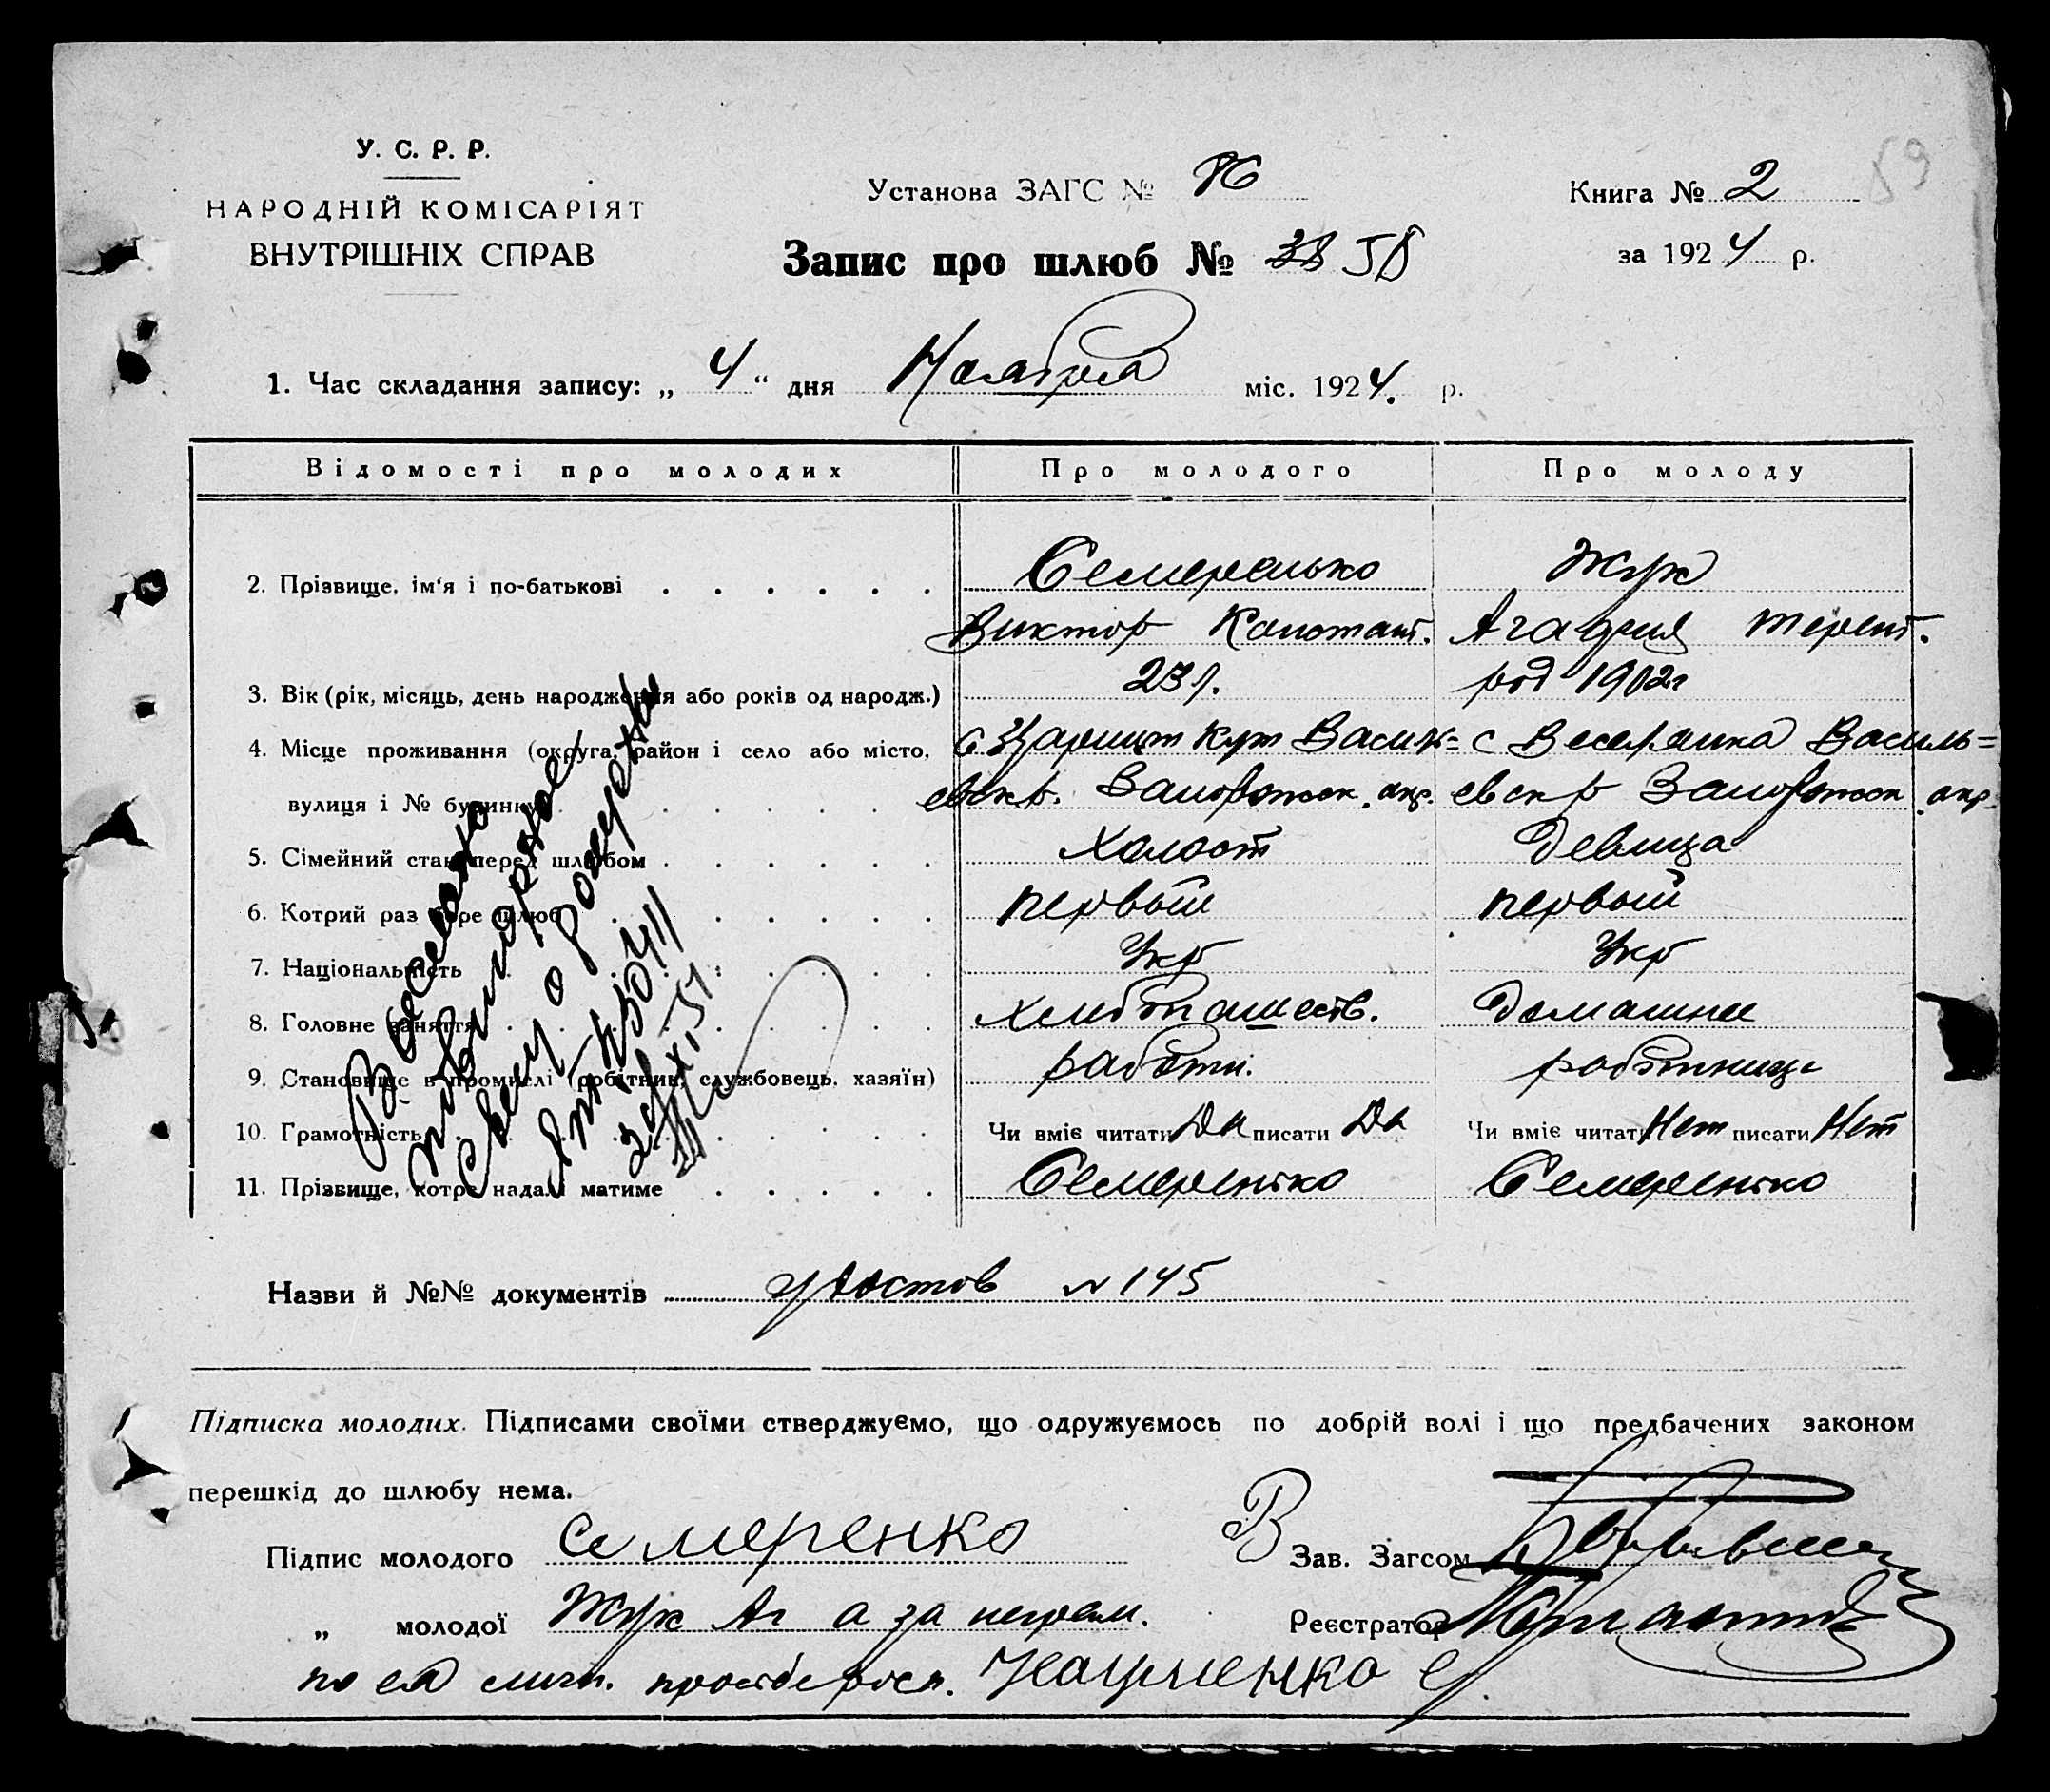 У. С. Р. Р.
НАРОДНІЙ КОМІСАРІЯТ
ВНУТРІШНІХ СПРАВ
Установа ЗАГС №
Книга № 2
59
Запис про шлюб № 38 58
за 1924 р.
1. Час складання запису: „ 4 “ дня Ноября міс. 1924. р.
Відомості про молодих Про молодого Про молоду
2. Прізвище, ім‘я і по-батькові Семеренько Жук
Виктор Констант. Агафия Терент.
3. Вік (рік, місяць, день народження або років од народж.) 23 г. род 1902 г
4. Місце проживання (округа, район і село або місто, с. Царицын Кут Василь= с Веселянка Василь=
вулиця і № будинку) евск р. Запорожск. окр. евск р Запорожск. окр.
5. Сімейний стан перед шлюбом Холост Девица
6. Котрий раз бере шлюб первый первый
7. Національність Укр Укр
8. Головне заняття хлебопашеств. Домашнее
9. Становище в промислі (робітник, службовець, хазяїн) работн. работница
10. Грамотність Чи вміє читати Да писати Да Чи вміє читати Нет писати Нет
11. Прізвище, котре надалі матиме Семеренько Семеренько
повторное
Свид о
Назви й №№ документів удостов № 145
Підписка молодих. Підписами своїми стверджуємо, що одружуємось по добрій волі і що предбачених законом
перешкід до шлюбу нема.
Підпис молодого Семеренко Зав. Загсом
„ молодої Жук Аг а за неграм. Реєстратор
по ея личн. просьбе росп.